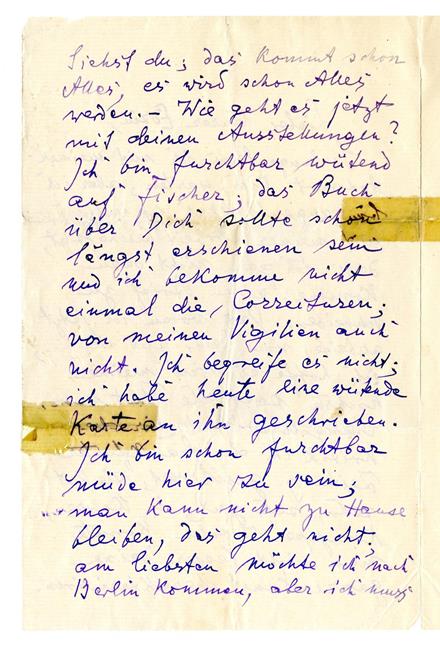 Siehst du; das kommt schon
Alles, es wird schon Alles
werden. – Wie geht es jetzt
mit deinen Ausstellungen?
Ich bin furchtbar wütend
auf Fischer; das Buch
über Dich sollte schon
längst erschienen sein
und ich bekomme nicht
einmal die Correituren;
von meinen Vigilien auch
nicht. Ich begreife es nicht;
ich habe heute eine wütende
Karte an ihn geschrieben.
Ich bin schon furchtbar
müde hier zu sein;
man kann nicht zu Hause
bleiben, das geht nicht;
am liebsten möchte ich nach
Berlin kommen, aber ich muss